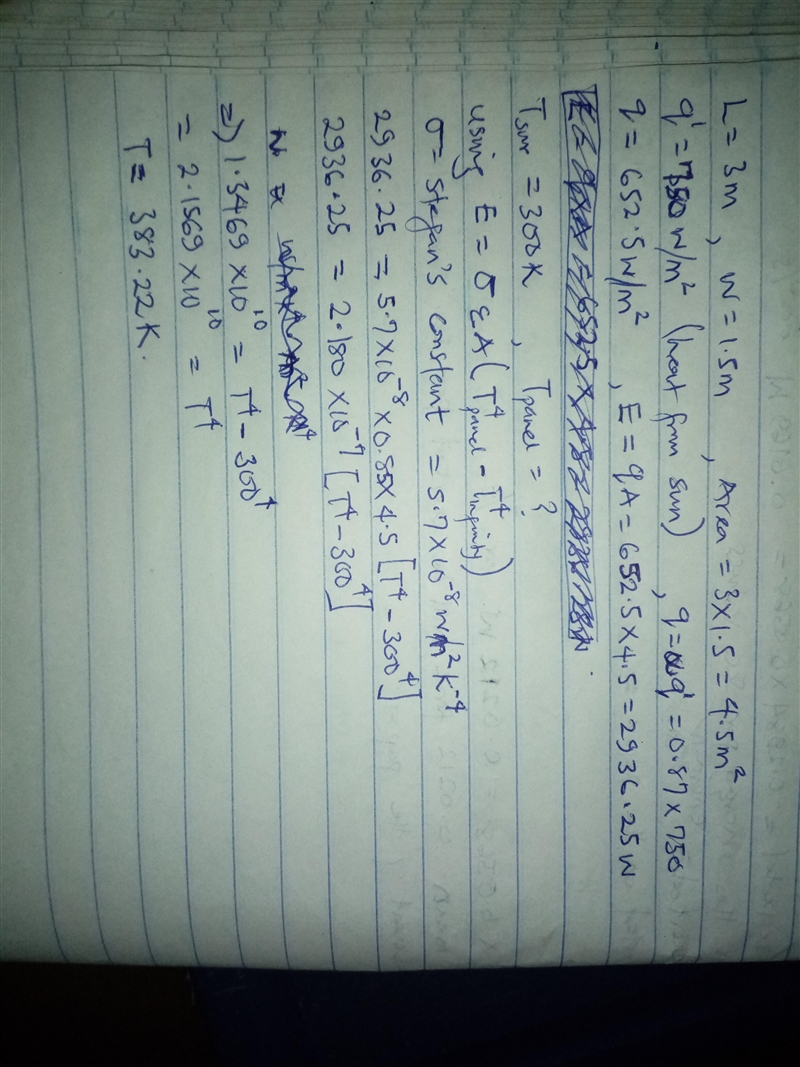 L = 3m , W = 1.5m , Area = 3×1.5 = 4.5m²
q' = 750 W/m² (heat from sun) , q = αq' = 0.87 × 750
q = 652.5 W/m² , E = qA = 652.5 × 4.5 = 2936.25 W
Tsurr = 300K , Tpanel = ?
using E = σεA (T⁴panel - T⁴infinity)
σ = Stefan's constant = 5.7×10⁻⁸ W/m²K⁻⁴
2936.25 = 5.7×10⁻⁸ × 0.85 × 4.5 [T⁴ - 300⁴]
2936.25 = 2.180 × 10⁻⁷ [T⁴ - 300⁴]
⇒) 1.3469 × 10¹⁰ = T⁴ - 300⁴
= 2.1569 × 10¹⁰ = T⁴
T = 383.22 K.